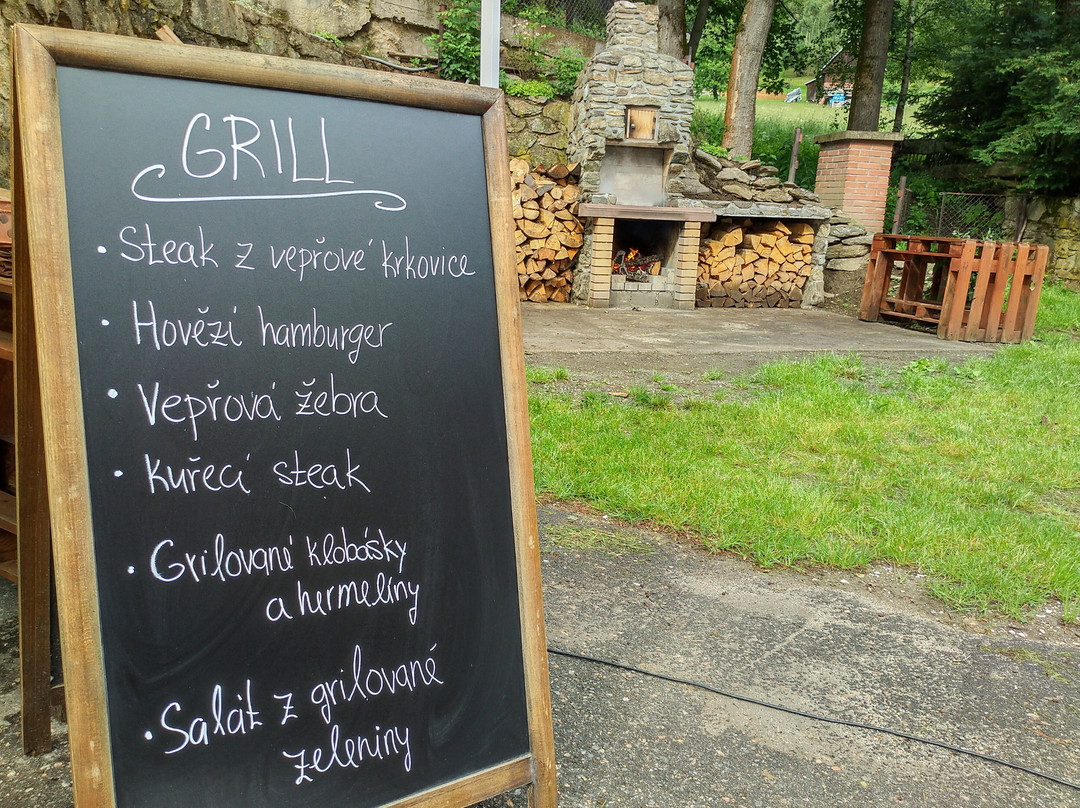 GRILL
• Steak z vepřové krkovice
• Hovězí hamburger
• Vepřová žebra
• Kuřecí steak
• Grilované klobásky
a hermelíny
• Salát z grilované
zeleniny